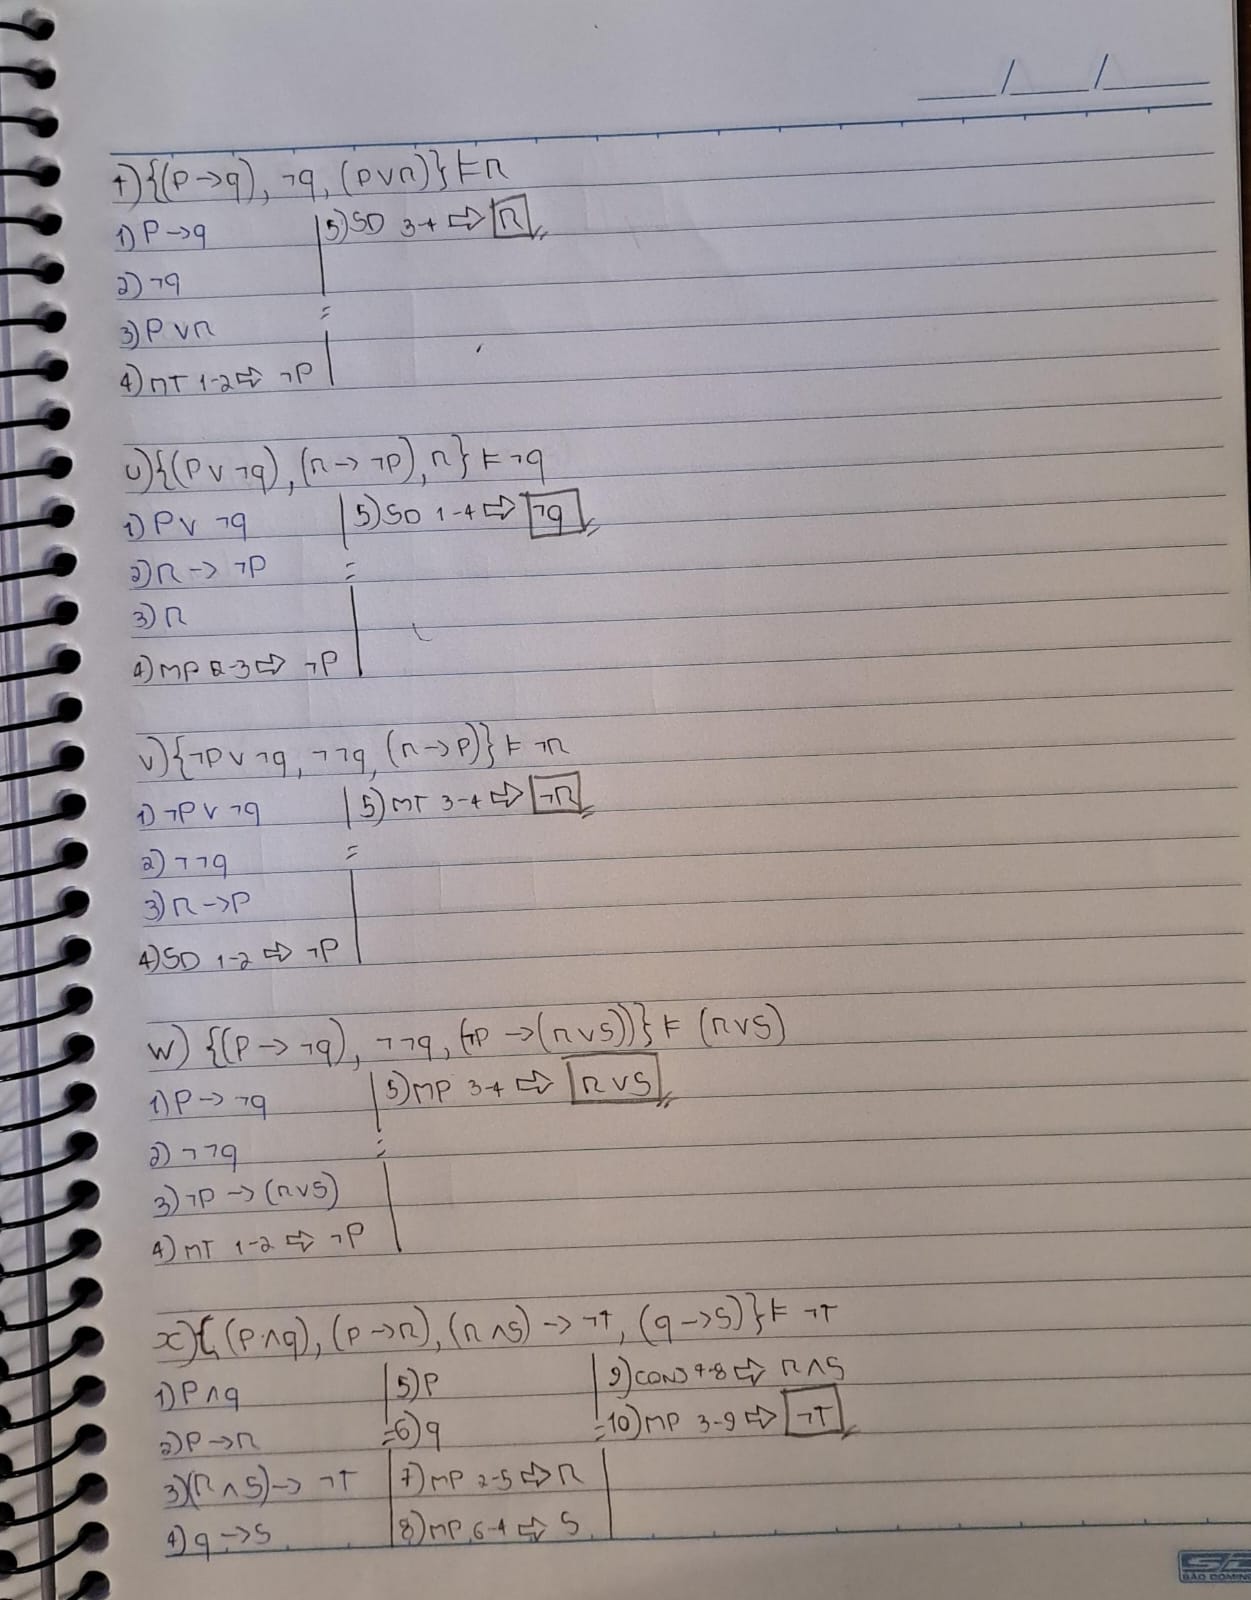 ___/___/___
t) {(P→q), ¬q, (P∨R)} ⊧ R
1) P→q
2) ¬q
3) P∨R
4) MT 1-2 ⇨ ¬P
5) SD 3-4 ⇨ R
u) {(P∨¬q), (R→¬P), R} ⊧ ¬q
1) P∨ ¬q
2) R→ ¬P
3) R
4) MP 2-3 ⇨ ¬P
5) SD 1-4 ⇨ ¬q
v) {¬P∨¬q, ¬¬q, (R→P)} ⊧ ¬R
1) ¬P∨ ¬q
2) ¬¬q
3) R→P
4) SD 1-2 ⇨ ¬P
5) MT 3-4 ⇨ ¬R
w) {(P→¬q), ¬¬q, (¬P→(R∨S))} ⊧ (R∨S)
1) P→ ¬q
2) ¬¬q
3) ¬P→(R∨S)
4) MT 1-2 ⇨ ¬P
5) MP 3-4 ⇨ R∨S
x) {(P∧q), (P→R), (R∧S)→¬T, (q→S)} ⊧ ¬T
1) P∧q
2) P→R
3) (R∧S)→ ¬T
4) q→S
5) P
6) q
7) MP 2-5 ⇨ R
8) MP 6-4 ⇨ S
9) CONJ 7-8 ⇨ R∧S
10) MP 3-9 ⇨ ¬T
SÃO DOMING